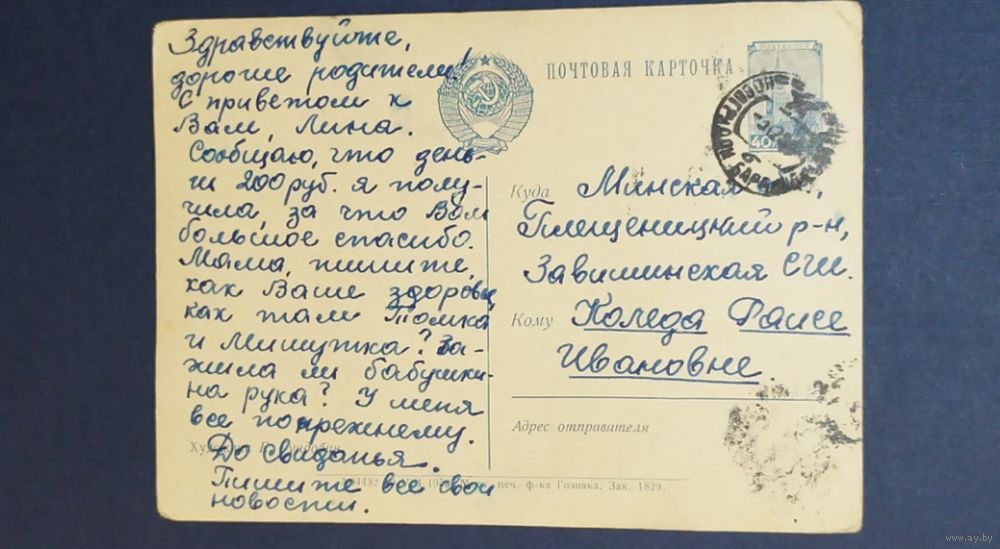 Здравствуйте,
дорогие родители!
С приветом к
Вам, Лина.
Сообщаю, что день-
ги 200 руб. я полу-
чила, за что Вам
большое спасибо.
Мама, пишите,
как Ваше здоровье
как там Томка
и Мишутка? За-
жила ли бабушки-
на рука? У меня
все попрежнему.
До свиданья.
Пишите все свои
новости.
ПОЧТОВАЯ КАРТОЧКА
40
Куда Минская
Плещеницкий р-н,
Завишинская СШ.
Кому Коледа Раисе
Ивановне.
Адрес отправителя
печ. ф-ка Гознака. Зак. 1829.
www.ay.by